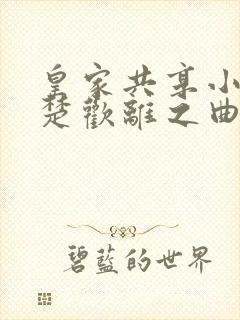 皇家共享小
楚歡離之曲
碧藍的世界